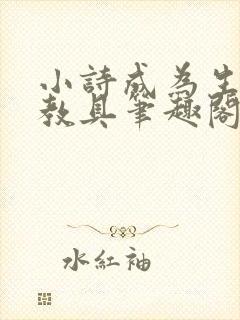 小詩成為生
教具筆趣閣
水紅袖